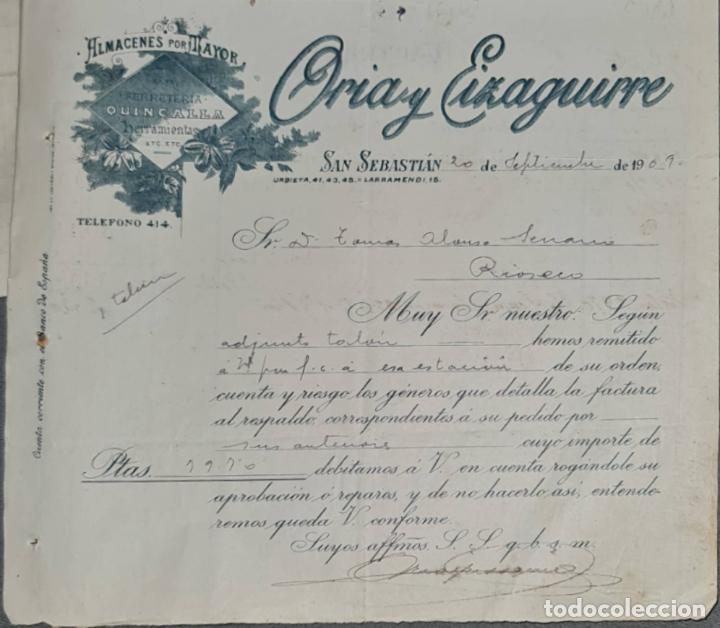 ALMACENES POR MAYOR
FERRETERIA
QUINCALLA
Herramientas
ETC. ETC.
TELEFONO 414.
Oria y Eizaguirre
SAN SEBASTIÁN 20 de Septiembre de 1909.
URBIETA, 41, 43, 45. = LARRAMENDI, 15.
Sr. D. Tomas Alonso
Rioseco
talon
Cuenta corriente con el Banco de España
Muy Sr. nuestro: Según
adjunto talón hemos remitido
á por f.c. á esa estación de su orden,
cuenta y riesgo los géneros que detalla la factura
al respaldo, correspondientes á su pedido por
sus cuyo importe de
Ptas. debitamos á V. en cuenta rogándole su
aprobación ó reparos, y de no hacerlo así, entende-
remos queda V. conforme.
Suyos affmos. S. S. q. b. s. m.
todocoleccion
todocoleccion.net